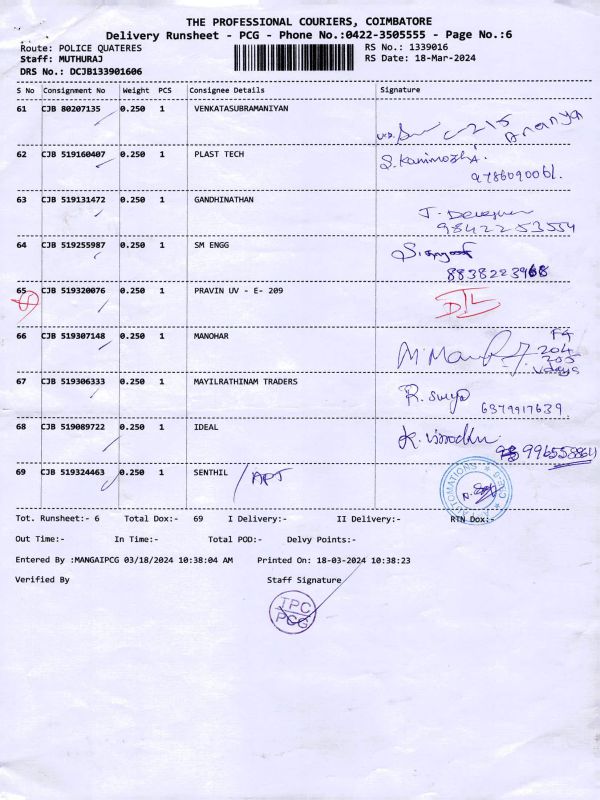 THE PROFESSIONAL COURIERS, COIMBATORE
Delivery Runsheet - PCG - Phone No.:0422-3505555 - Page No.:6
Route: POLICE QUATERES RS No.: 1339016
Staff: MUTHURAJ RS Date: 18-Mar-2024
DRS No.: DCJB133901606
S No Consignment No Weight PCS Consignee Details Signature
61 CJB 80207135 0.250 1 VENKATASUBRAMANIYAN
Ananya
62 CJB 519160407 0.250 1 PLAST TECH S. Kanimozhi.
9786090061.
63 CJB 519131472 0.250 1 GANDHINATHAN
9842253554
64 CJB 519255987 0.250 1 SM ENGG
8838223968
65 CJB 519320076 0.250 1 PRAVIN UV - E- 209 DTL
66 CJB 519307148 0.250 1 MANOHAR F4
204
205
67 CJB 519306333 0.250 1 MAYILRATHINAM TRADERS R. surya
6379917639
68 CJB 519089722 0.250 1 IDEAL
69 CJB 519324463 0.250 1 SENTHIL / APT
AUTOMATIONS
Tot. Runsheet:- 6 Total Dox:- 69 I Delivery:- II Delivery:- RTN Dox:-
Out Time:- In Time:- Total POD:- Delvy Points:-
Entered By :MANGAIPCG 03/18/2024 10:38:04 AM Printed On: 18-03-2024 10:38:23
Verified By Staff Signature
TPC
PCG